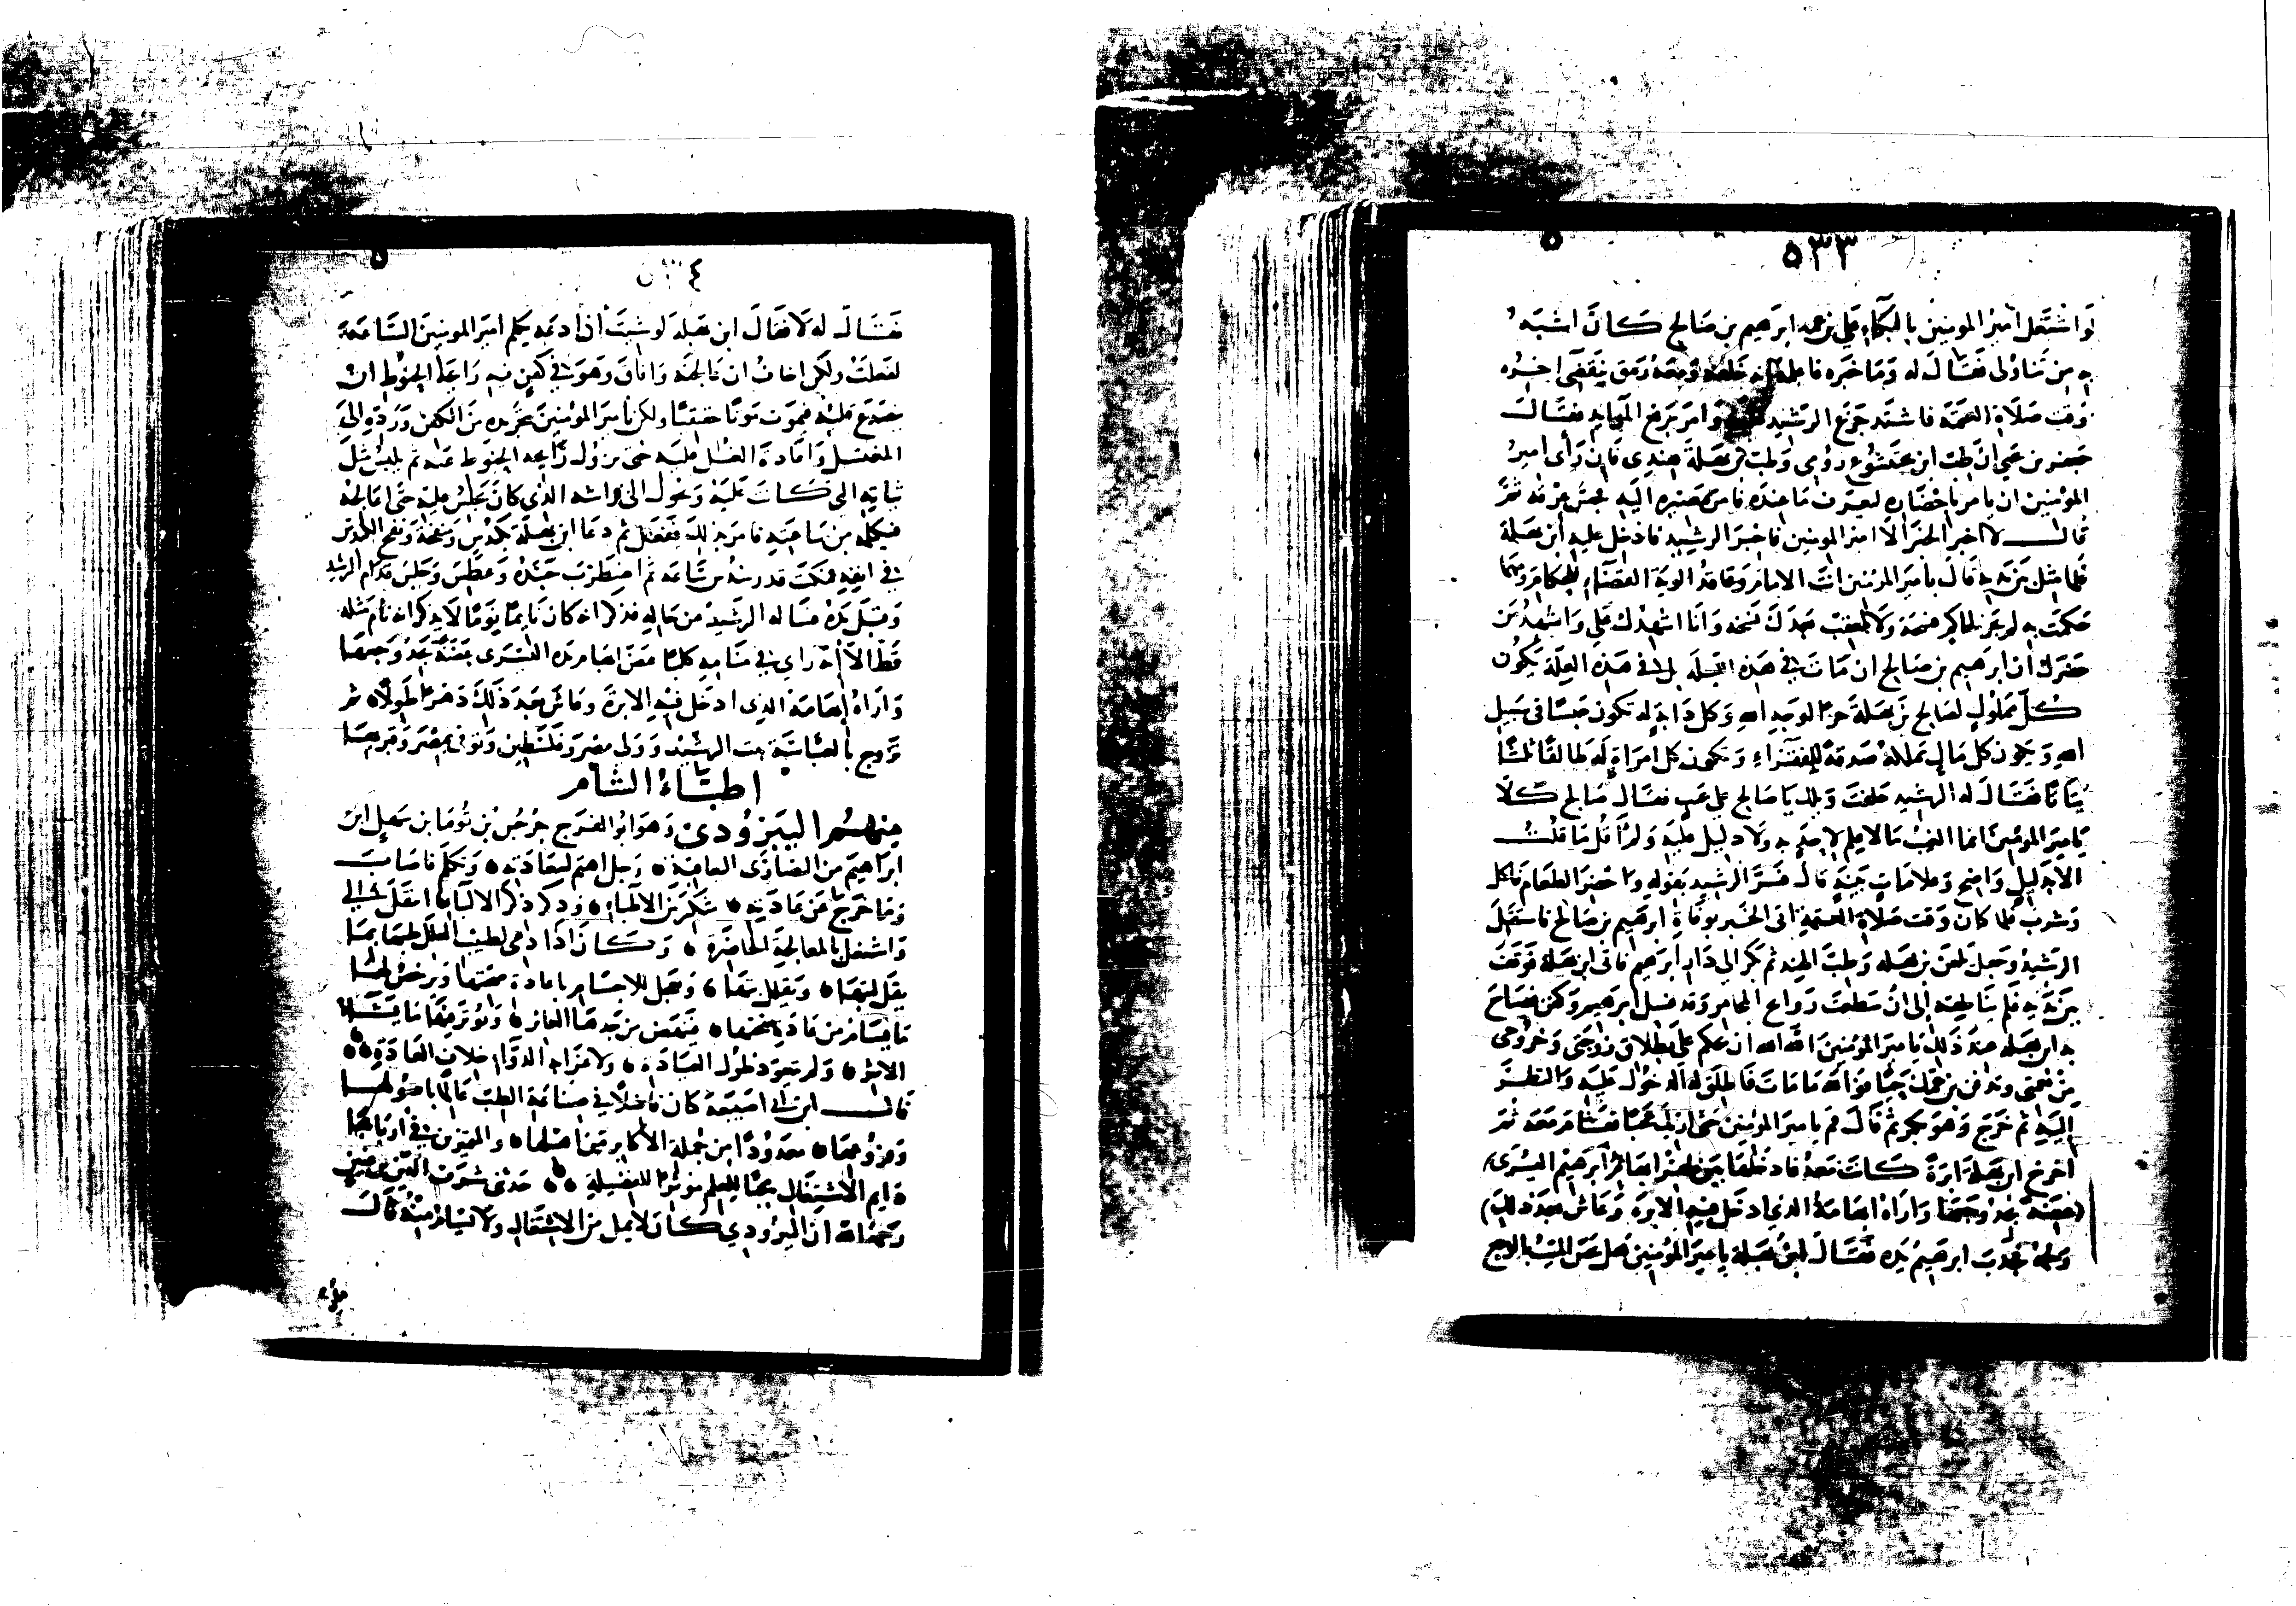 ٥٣٣
لو اشتغل امير المومنين بالبكاء على بن عمه ابراهيم بن صالح كان اشبه
به من تناولى فقال له وما خبره فاعلمه انه خلفه ومعه رمق ينقضى اخره
وقت صلاة العتمة فاشتد جزع الرشيد وامر برفع الموايد فقال
جعفر بن يحيى ان طب ابن بختيشوع رومى وطب بن بهلة هندى فان رأى امير
المؤمنين ان يامر باحضاره ليعرف ما عنده فامر بمصيره اليه لجس عرقه ثم
قال لا اخبر الخبر الا امير المومنين فاخبر الرشيد فادخل عليه ابن بهلة
فلما مثل بين يديه قال يا امير المؤمنين انت الامام وقاعد الوية القضاء للحكام ومهما
حكمت به لم يجز لحاكم فسخه وانا اشهدك على واشهد من
حضرك ان ابراهيم بن صالح ان مات فى هذه الليلة او فى هذه العلة يكون
كل مملوك لصالح بن بهلة حرا لوجه الله وكل دابة له تكون حبسا فى سبيل
الله ويكون كل مال يملكه صدقة للفقراء وتكون كل امراة له طالقا ثلثا
بتاتا فقال له الرشيد حلفت ويلك يا صالح على غيب فقال صالح كلا
يا امير المؤمنين انما الغيب ما لا علم لاحد به ولا دليل عليه ولم اقل ما قلت
الا بدليل واضح وعلامات بينة قال فسر الرشيد بقوله واحضر الطعام فاكل
وشرب فلما كان وقت صلاة العتمة اتى الخبر بوفاة ابرهيم بن صالح فاستقبل
الرشيد وجعل يلعن بن بهله وطب الهند ثم بكر الى دار ابرهيم فاتى ابن بهلة فوقف
بين يديه فلم يناطقه الى ان سطعت روايح المجامر وقد غسل ابرهيم وكفن فصاح
به ابن بهله عند ذلك يا امير المؤمنين الله الله ان تحكم على بطلاق زوجتى وخروجى
من نعمتى وتدفن بن عمك حيا فوالله ما مات فاطلق له الدخول عليه والنظر
اليه ثم خرج وهو يكبر ثم قال قم يا امير المؤمنين حتى اريك عجبا فقام معه ثم
اخرج ابن بهلة ابرة كانت معه فادخلها بين ظفر ابهام ابرهيم اليسرى
(فعضه بحد وجعها واراه ابهامه الذى ادخل فيه الابرة وعاش بعد ذلك)
ولحمه فجذب ابرهيم يده فقال ابن بهله يا امير المؤمنين هل يحس الميت بالاوجع
٥٣٤
فقال له لا فقال ابن بهله لو شيت ان ادعه يكلم امير المومنين الساعة
لفعلت ولكن اخاف ان عالجته وافاق وهو فى كفن فيه رايحة الحنوط ان
ينصدع قلبه فيموت موتا حقيقيا ولكن يا امير المؤمنين بجرده من الكفن ورده الى
المغتسل واعادة الغسل عليه حتى تزول رايحه الحنوط عنه ثم يلبس مثل
ثيابه التى كانت عليه ويحول الى فراشه الذى كان يجلس عليه حتى اعالجه
فيكلمه من ساعته فامر بذلك ففعل ثم دعا ابن بهلة بكندس ومنفخة ونفخ الكندس
فى انفه فمكث قدر سدس ساعه ثم اضطرب جسده وعطس وجلس قدام الرشيد
وقبل يده فساله الرشيد عن حاله فذكر انه كان نايما نوما لا يذكر انه نام مثله
قط الا انه راى فى منامه كلبا عض ابهام يده اليسرى عضة يجد وجعها
واراه ابهامه الذى ادخل فيه الابرة وعاش بعد ذلك دهرا طويلا ثم
تزوج بالعباسة بنت الرشيد وولى مصر وفلسطين وتوفى بمصر وقبر بها
اطباء الشام
منهم اليبرودى وهو ابو الفرج جرجس بن توما بن سهل ابن
ابراهيم من النصارى اليعاقبة رجل اهتم لسعادته وتكلم فاصاب
وما خرج عن عادته
واشتغل بالمعالجة الحاضرة وكان اذا دعى لطبيب العلل طبها بما
قال ابن ابى اصيبعة كان فاضلا فى صناعة الطب عالما باصولها
وفروعها معدودا من جملة الاكابر من اهلها والمتميزين فى اربابها
دايم الاشتغال محبا للعلم موثرا للفضيلة حدثنى شرف الدين بن عنين
رحمه الله ان اليبرودي كان لا يمل من الاشتغال ولا يسام منه قال